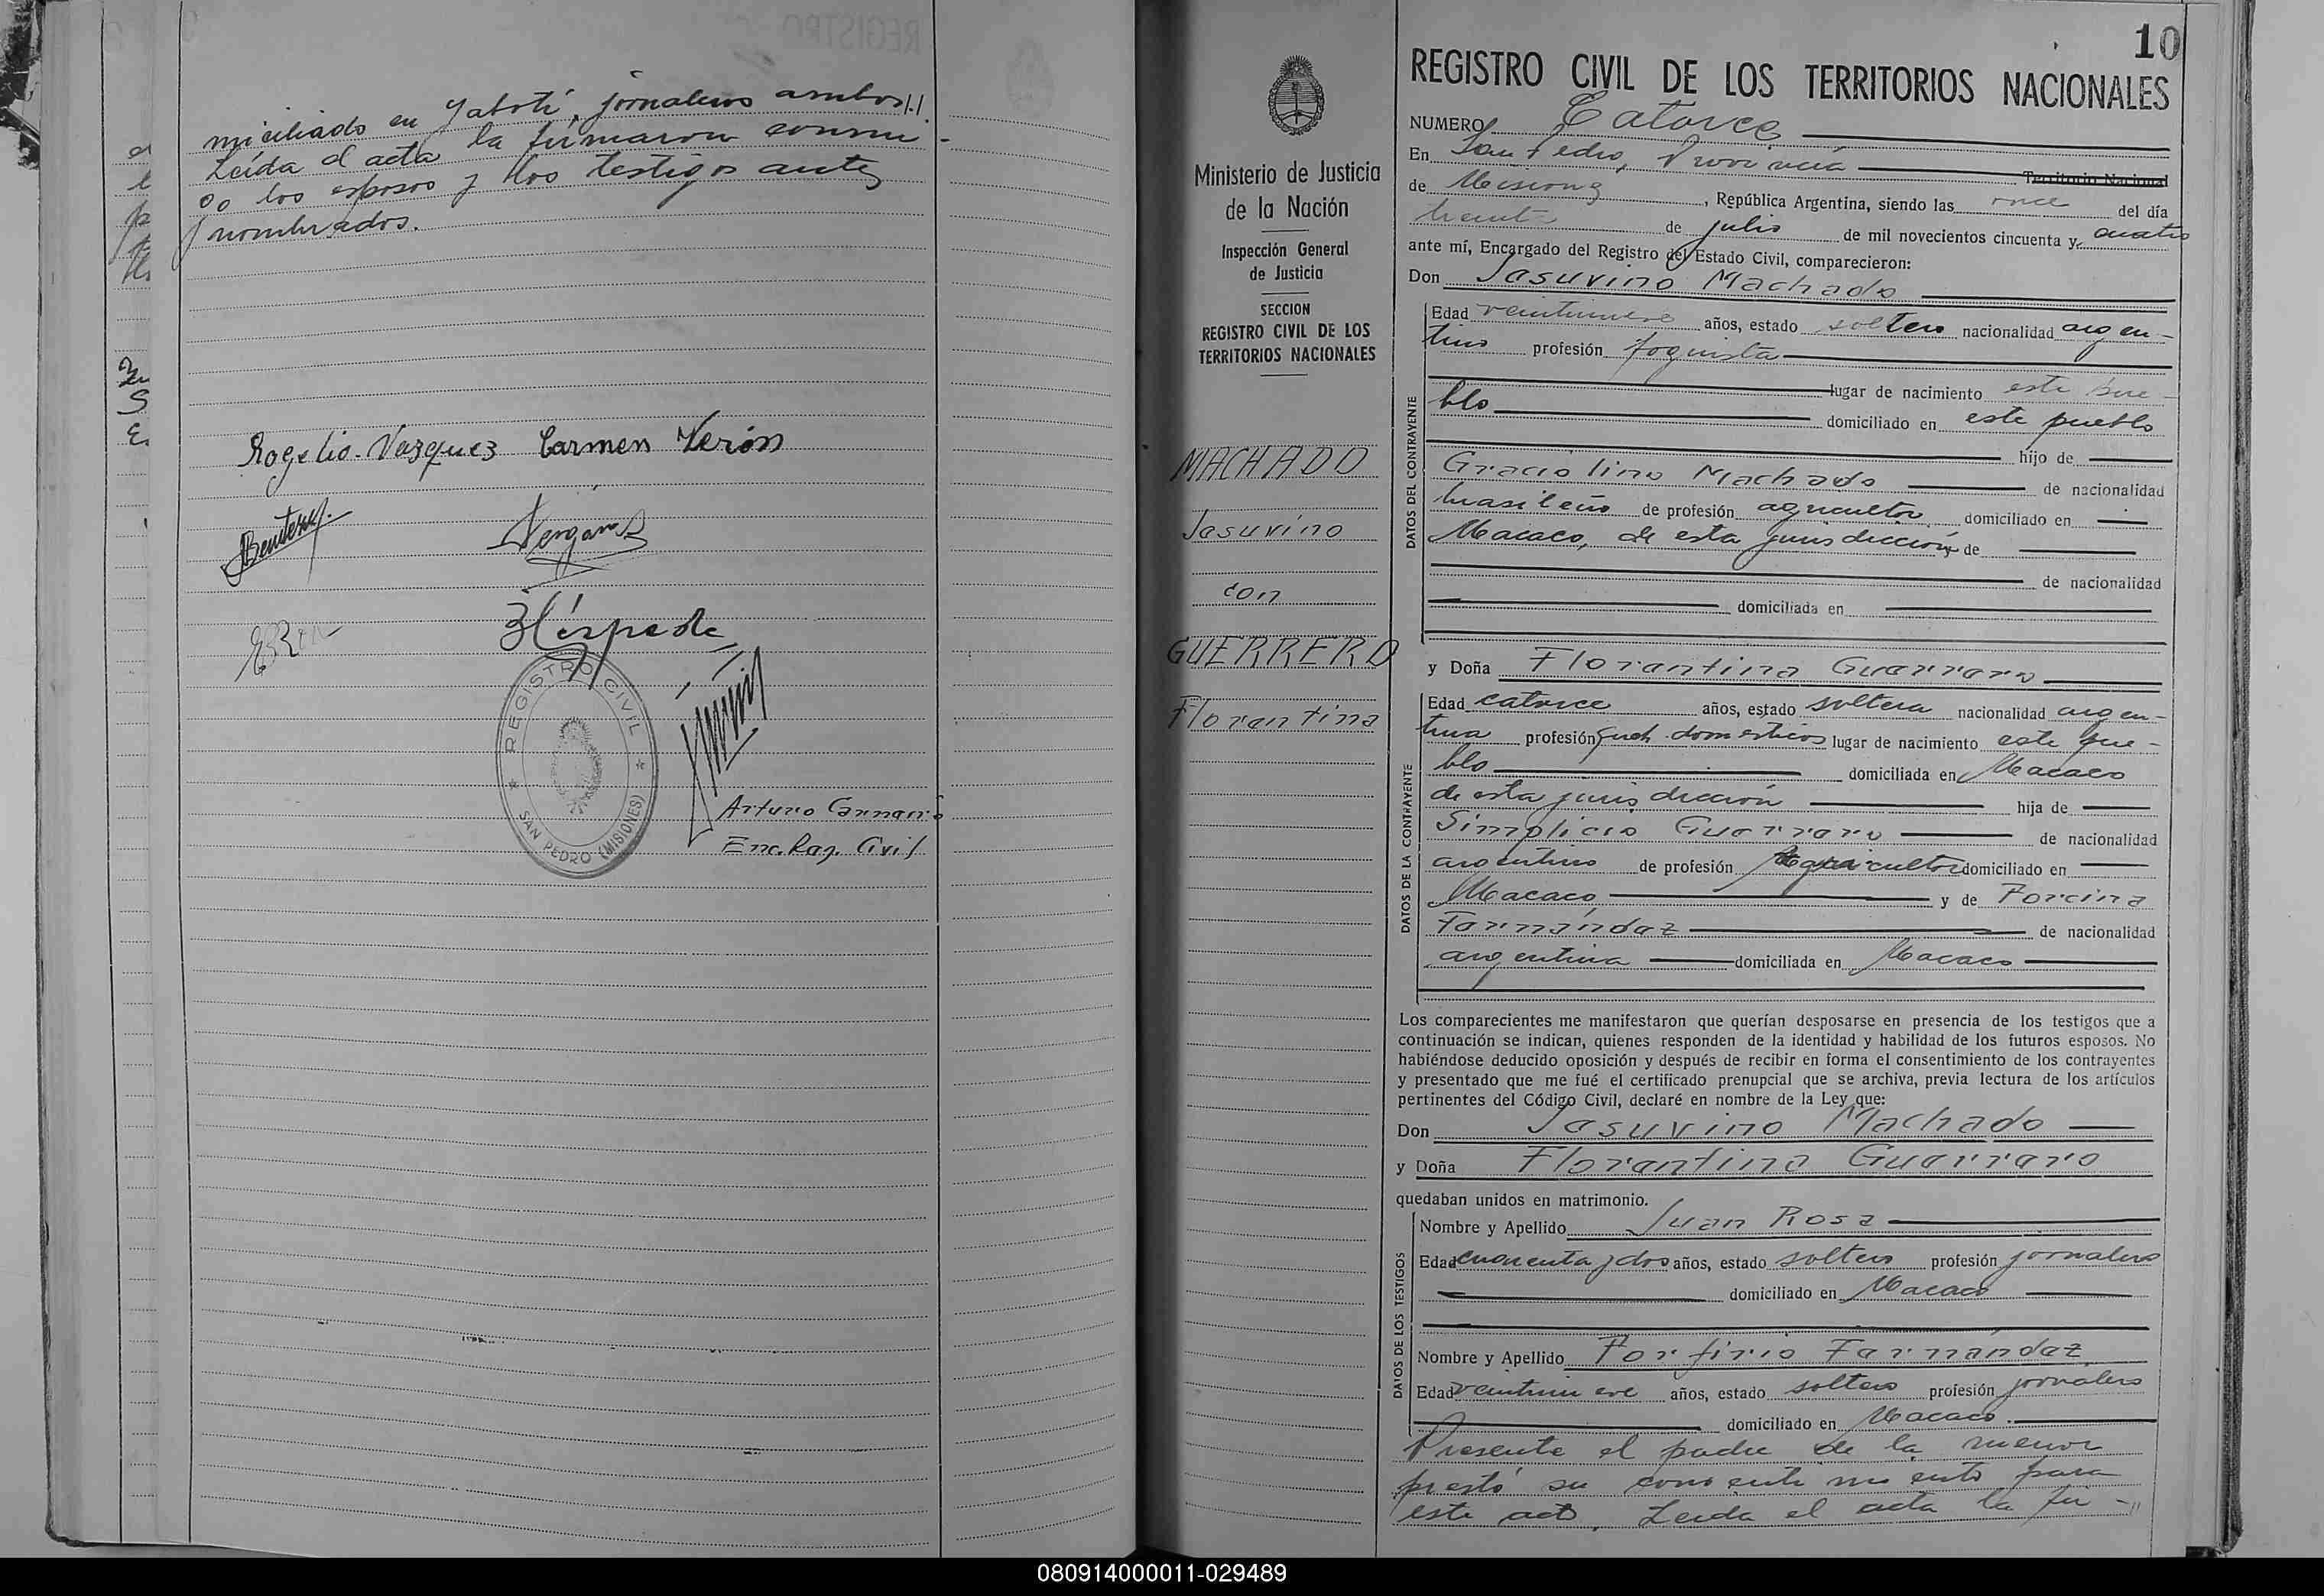 miciliado en Yabotí, jornaleros ambos.
Leída el acta la firmaron conmi-
go los esposos y los testigos antes
nombrados.
Rogelio Vasquez Carmen Verón
REGISTRO CIVIL
SAN PEDRO (MISIONES)
Enc. Reg. Civil
10
REGISTRO CIVIL DE LOS TERRITORIOS NACIONALES
Ministerio de Justicia
de la Nación
Inspección General
de Justicia
SECCION
REGISTRO CIVIL DE LOS
TERRITORIOS NACIONALES
MACHADO
Jesuvino
con
GUERRERO
Florentina
NUMERO Catorce
En San Pedro, Provincia Territorio Nacional
de Misiones, República Argentina, siendo las once del día
treinta de julio de mil novecientos cincuenta y cuatro
ante mí, Encargado del Registro del Estado Civil, comparecieron:
Don Jesuvino Machado
DATOS DEL CONTRAYENTE
Edad veintinueve años, estado soltero nacionalidad argen-
tino profesión foguista
lugar de nacimiento este pue-
blo domiciliado en este pueblo
hijo de
Graciolino Machado de nacionalidad
brasileño de profesión agricultor domiciliado en
Macaco, de esta jurisdicción y de
de nacionalidad
domiciliada en
y Doña Florentina Guerrero
DATOS DE LA CONTRAYENTE
Edad catorce años, estado soltera nacionalidad argen-
tina profesión queh. domésticos lugar de nacimiento este pue-
blo domiciliada en Macaco
de esta jurisdicción hija de
Simplicio Guerrero de nacionalidad
argentino de profesión agricultor domiciliado en
Macaco y de Porcina
Fernández de nacionalidad
argentina domiciliada en Macaco
Los comparecientes me manifestaron que querían desposarse en presencia de los testigos que a
continuación se indican, quienes responden de la identidad y habilidad de los futuros esposos. No
habiéndose deducido oposición y después de recibir en forma el consentimiento de los contrayentes
y presentado que me fué el certificado prenupcial que se archiva, previa lectura de los artículos
pertinentes del Código Civil, declaré en nombre de la Ley que:
Don Jesuvino Machado
y Doña Florentina Guerrero
quedaban unidos en matrimonio.
DATOS DE LOS TESTIGOS
Nombre y Apellido Juan Rosa
Edad cuarenta y dos años, estado soltero profesión jornalero
domiciliado en Macaco
Nombre y Apellido Porfirio Fernández
Edad veintinueve años, estado soltero profesión jornalero
domiciliado en Macaco.
Presente el padre de la menor
prestó su consentimiento para
este acto. Leída el acta la fir-
080914000011-029489